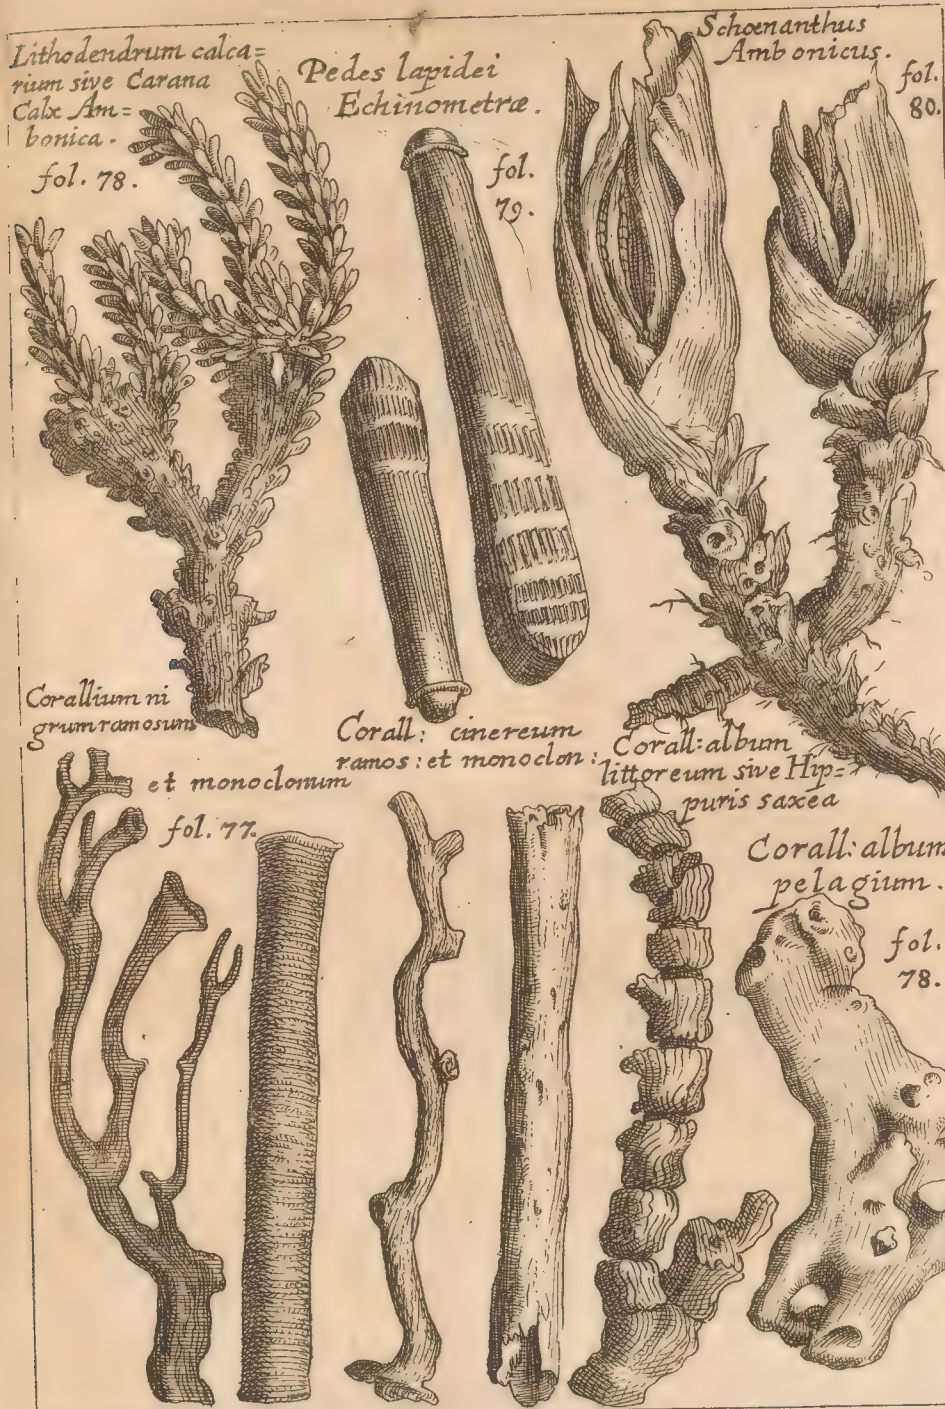 Lithodendrum calca=
rium sive Carana
Calx Am=
bonica.
fol. 78.
Pedes lapidei
Echinometræ.
fol.
79.
Schœnanthus
Ambonicus.
fol.
80.
Corallium ni
grum ramosum
et monoclonum
fol. 77.
Corall: cinereum
ramos: et monoclon:
Corall: album
littoreum sive Hip=
puris saxea
Corall: album
pelagium.
fol.
78.